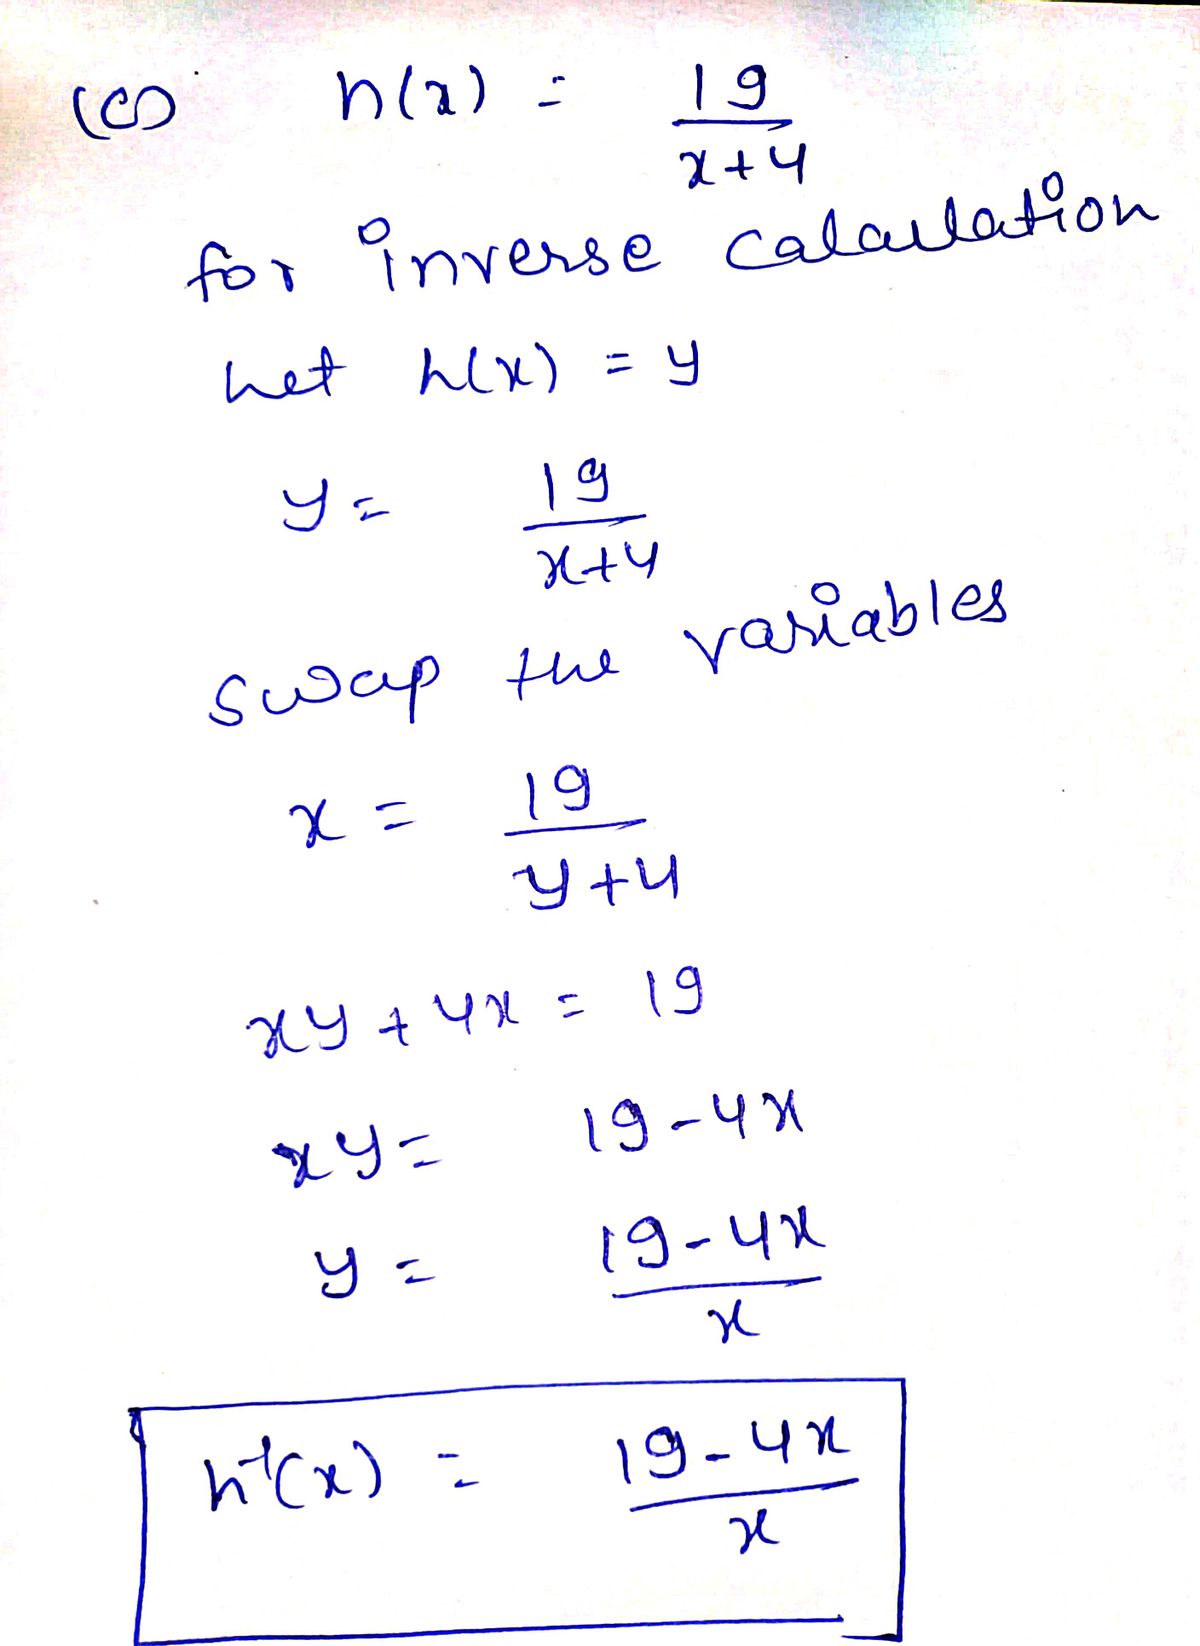 (c) h(x) = 19/(x+4)
for inverse calculation
Let h(x) = y
y = 19/(x+4)
swap the variables
x = 19/(y+4)
xy + 4x = 19
xy = 19-4x
y = (19-4x)/x
h⁻¹(x) = (19-4x)/x